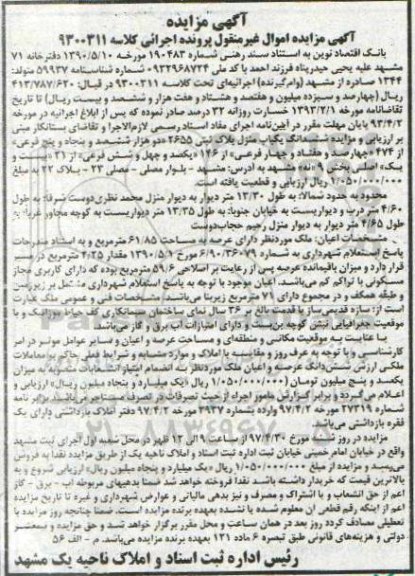 آگهی مزایده
آگهی مزایده اموال غیرمنقول پرونده اجرائی کلاسه ۹۳۰۰۳۱۱
بانک اقتصاد نوین به استناد سند رهنی شماره ۱۹۰۴۸۳ مورخه ۱۳۹۰/۵/۱۰ دفترخانه ۷۱
مشهد علیه یحیی حیدرپناه فرزند احمد با کد ملی ۰۹۳۲۹۶۸۷۲۴ شماره شناسنامه ۵۹۹۳۷ متولد:
۱۳۴۴ صادره از مشهد (وام‌گیرنده) اجرائیه‌ای تحت کلاسه ۹۳۰۰۳۱۱ در قبال: ۴۱۳/۷۸۷/۶۲۰
ریال (چهارصد و سیزده میلیون و هفتصد و هشتاد و هفت هزار و ششصد و بیست ریال) تا تاریخ
تقاضانامه ۱۳۹۳/۲/۱ مورخه خسارت روزانه ۳۲ درصد صادر نموده که پس از ابلاغ اجرائیه در مورخه
۹۳/۴/۲ پایان مهلت مقرر در آئین‌نامه اجرای مفاد اسناد رسمی لازم‌الاجرا و تقاضای بستانکار مبنی
بر ارزیابی و مزایده: ششدانگ یکباب منزل پلاک ثبتی ۲۶۵۵ «دو هزار ششصد و پنجاه و پنج فرعی»
از ۴۷۴ «چهارصد و هفتاد و چهار فرعی» از ۱۴۶ «یکصد و چهل و شش فرعی» از ۲۱ «بیست و
یک» اصلی بخش ۹ «نه» مشهد به آدرس: مشهد - بلوار مصلی - مصلی ۲۳ - پلاک ۲۲ به مبلغ
۱/۰۵۰/۰۰۰/۰۰۰ ریال ارزیابی و قطعیت یافته است.
محدود به حدود شمالا: به طول ۱۳/۳۰ متر دیوار به دیوار منزل محمد نظری‌دوست شرقا: به طول
۴/۶۰ متر درب و دیواریست به خیابان جنوبا: به طول ۱۳/۳۵ متر دیواریست به کوچه مجاور غربا: به
طول ۴/۶۵ متر دیوار به دیوار منزل رحیم حجاب‌دوست
مشخصات اعیان: ملک موردنظر دارای عرصه به مساحت ۶۱/۸۵ مترمربع و به استناد مندرجات
پاسخ استعلام شهرداری به شماره ۶/۹۰/۳۶۰۷۹ مورخ ۱۳۹۰/۵/۱ مقدار ۲/۲۵ مترمربع در مسیر
قرار دارد و میزان باقیمانده عرصه پس از رعایت بر اصلاحی ۵۹/۶ مترمربع بوده که دارای کاربری مجاز
مسکونی با تراکم کم می‌باشد. اعیان موجود با توجه به پاسخ استعلام شهرداری مشتمل بر زیرزمین
و طبقه همکف و در مجموع دارای ۷۱ مترمربع زیربنا می‌باشد. مشخصات فنی و عمومی ملک عبارت
است از: سازه قدیمی‌ساز با قدمت بالغ بر ۳۶ سال نمای ساختمان سیمانکاری کف حیاط موزائیک و با
موقعیت جغرافیایی نبش کوچه بن‌بست و دارای امتیازات آب برق و گاز می‌باشد.
با عنایت به موقعیت مکانی و منطقه‌ای و مساحت عرصه و اعیان و سایر عوامل موثر در امر
کارشناسی و با توجه به عرف روز و مقایسه با املاک و موارد مشابه و شرایط فعلی حاکم بر معاملات
ملکی ارزش ششدانگ عرصه و اعیان ملک موردنظر به انضمام امتیاز انشعابات منصوبه به میزان
یکصد و پنج میلیون تومان (۱/۰۵۰/۰۰۰/۰۰۰ ریال «یک میلیارد و پنجاه میلیون ریال») ارزیابی و
اعلام می‌گردد و برابر گزارش مامور اجراء از حیث تصرفات در تصرف مستاجر می‌باشد. برابر نامه
شماره ۲۷۳۱۹ مورخ ۹۷/۴/۲ وارده بشماره ۳۹۳۷ مورخ ۹۷/۴/۲ دفتر املاک بازداشتی دارای یک
فقره بازداشتی می‌باشد.
مزایده در روز شنبه مورخ ۹۷/۴/۳۰ از ساعت ۹ الی ۱۲ ظهر در محل شعبه اول اجرای ثبت مشهد
واقع در خیابان امام خمینی خیابان ثبت اداره ثبت اسناد و املاک ناحیه یک از طریق مزایده نقدا به فروش
می‌رسد و مزایده از مبلغ ۱/۰۵۰/۰۰۰/۰۰۰ ریال «یک میلیارد و پنجاه میلیون ریال» ارزیابی شروع و به
بالاترین قیمت که خریدار داشته باشد نقدا فروخته خواهد شد ضمنا بدهیهای مربوطه آب - برق - گاز
اعم از حق انشعاب و یا اشتراک و مصرف و نیز بدهی مالیاتی و عوارض شهرداری و غیره تا تاریخ مزایده
اعم از اینکه رقم قطعی آن معلوم شده یا نشده بعهده برنده مزایده است. ضمنا چنانچه روز مزایده با
تعطیلی مصادف گردد روز بعد در همان ساعت و محل مقرر برگزار خواهد شد و حق مزایده و نیمعشر
دولتی و هزینه‌های قانونی طبق تبصره ۶ ماده ۱۲۱ بعهده برنده مزایده می‌باشد. م - الف ۵۶
رئیس اداره ثبت اسناد و املاک ناحیه یک مشهد